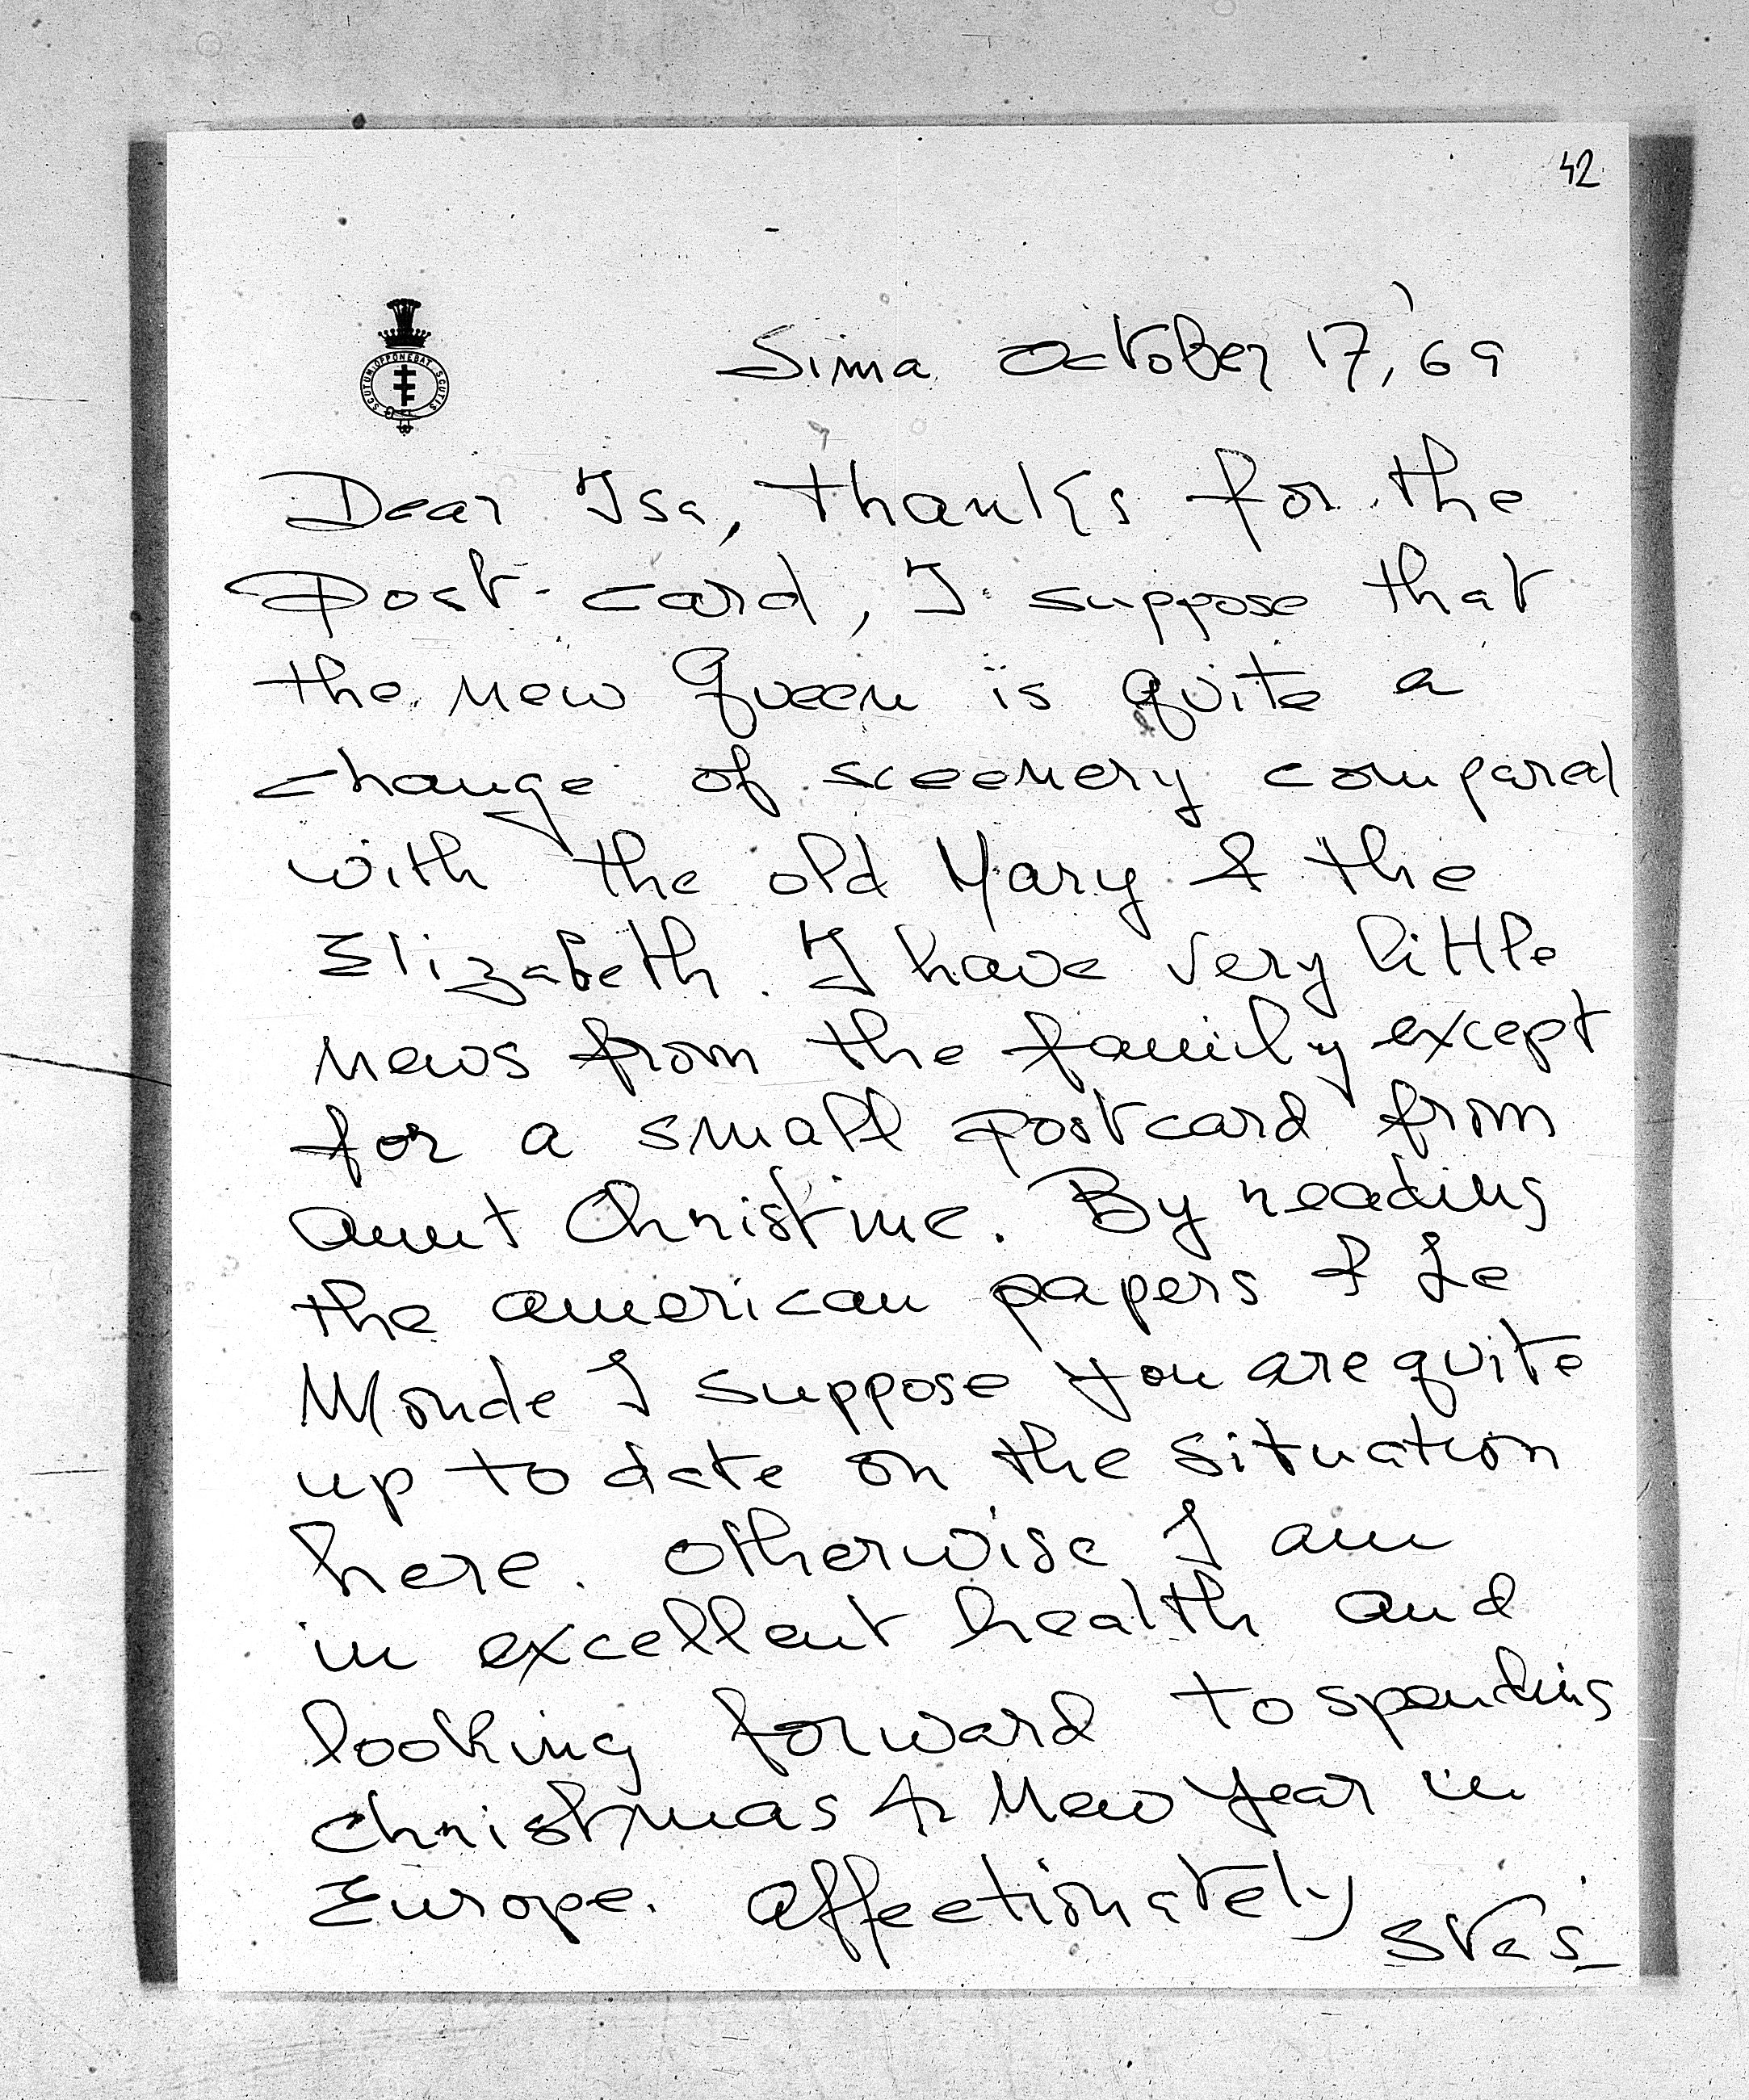 42
SCUTUM OPPONEBAT SCUTIS
Lima October 17, 69
Dear Isa, thanks for the
Post-card, I suppose that
the new Queen is quite a
change of sceenery compared
with the old Mary & the
Elizabeth. I have very little
news from the family except
for a small postcard from
aunt Christine. By reading
the american papers & Le
Monde I suppose you are quite
up to date on the situation
here. Otherwise I am
in excellent health and
looking forward to spending
Christmas & New Year in
Europe. Affectionately
Stas